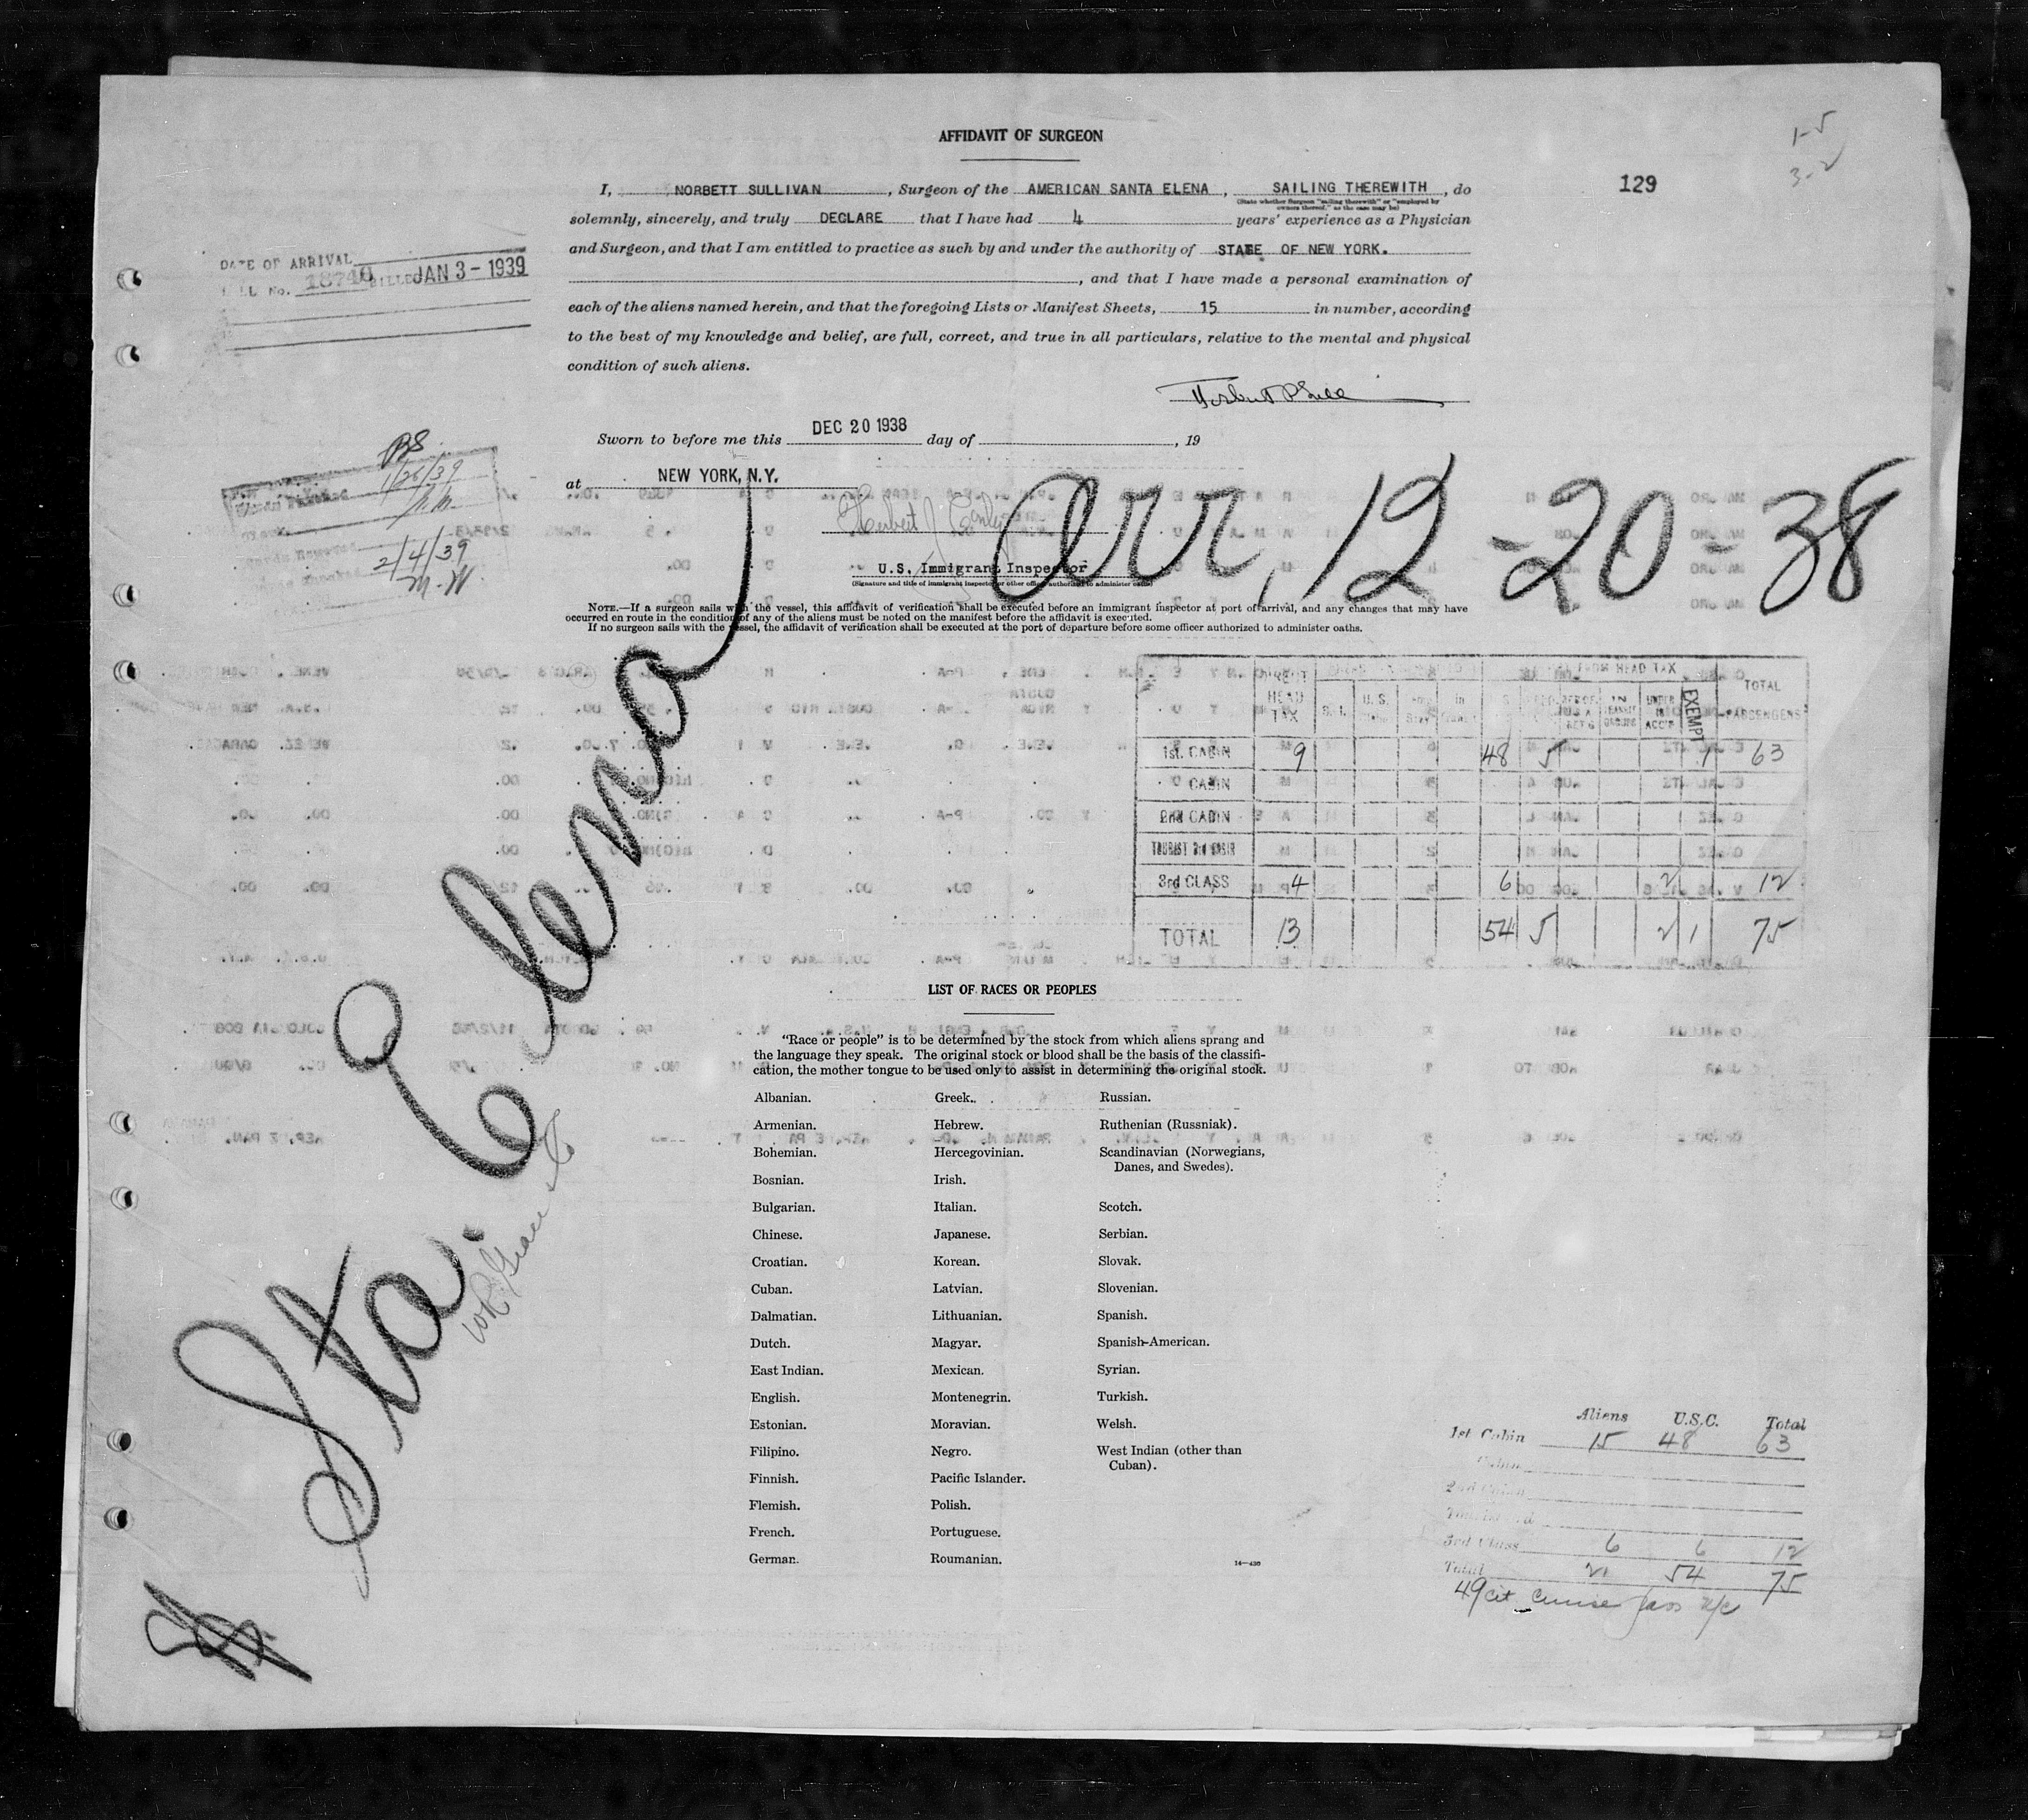 AFFIDAVIT OF SURGEON
1-5
3-2
129
I, NORBETT SULLIVAN, Surgeon of the AMERICAN SANTA ELENA, SAILING THEREWITH, do
(State whether Surgeon "sailing therewith" or "employed by
owners thereof," as the case may be)
solemnly, sincerely, and truly DECLARE that I have had 4 years' experience as a Physician
and Surgeon, and that I am entitled to practice as such by and under the authority of STATE OF NEW YORK.
, and that I have made a personal examination of
each of the aliens named herein, and that the foregoing Lists or Manifest Sheets, 15 in number, according
to the best of my knowledge and belief, are full, correct, and true in all particulars, relative to the mental and physical
condition of such aliens.
DATE OF ARRIVAL
No. 18740 JAN 3 - 1939
Sworn to before me this DEC 20 1938 day of , 19
at NEW YORK, N.Y.
Herbert J
U.S. Immigrant Inspector
(Signature and title of immigrant inspector or other officer authorized to administer oaths)
1/26/39
2/4/39
M.W.
Arr. 12-20-38
NOTE.—If a surgeon sails with the vessel, this affidavit of verification shall be executed before an immigrant inspector at port of arrival, and any changes that may have
occurred en route in the condition of any of the aliens must be noted on the manifest before the affidavit is executed.
If no surgeon sails with the vessel, the affidavit of verification shall be executed at the port of departure before some officer authorized to administer oaths.
Sta. Elena
FROM HEAD TAX
HEAD TAX U.S. EXEMPT TOTAL PASSENGERS
1st. CABIN 9 48 5 1 63
CABIN
2nd CABIN
TOURIST 3rd CABIN
3rd CLASS 4 6 2 12
TOTAL 13 54 5 2 1 75
LIST OF RACES OR PEOPLES
"Race or people" is to be determined by the stock from which aliens sprang and
the language they speak. The original stock or blood shall be the basis of the classifi-
cation, the mother tongue to be used only to assist in determining the original stock.
Albanian. Greek. Russian.
Armenian. Hebrew. Ruthenian (Russniak).
Bohemian. Hercegovinian. Scandinavian (Norwegians,
Danes, and Swedes).
Bosnian. Irish.
Bulgarian. Italian. Scotch.
Chinese. Japanese. Serbian.
Croatian. Korean. Slovak.
Cuban. Latvian. Slovenian.
Dalmatian. Lithuanian. Spanish.
Dutch. Magyar. Spanish-American.
East Indian. Mexican. Syrian.
English. Montenegrin. Turkish.
Estonian. Moravian. Welsh.
Filipino. Negro. West Indian (other than
Cuban).
Finnish. Pacific Islander.
Flemish. Polish.
French. Portuguese.
German. Roumanian.
14—430
Aliens U.S.C. Total
1st Cabin 15 48 63
Cabin
2nd Cabin
3rd Class 6 6 12
Total 21 54 75
49 cit cruise